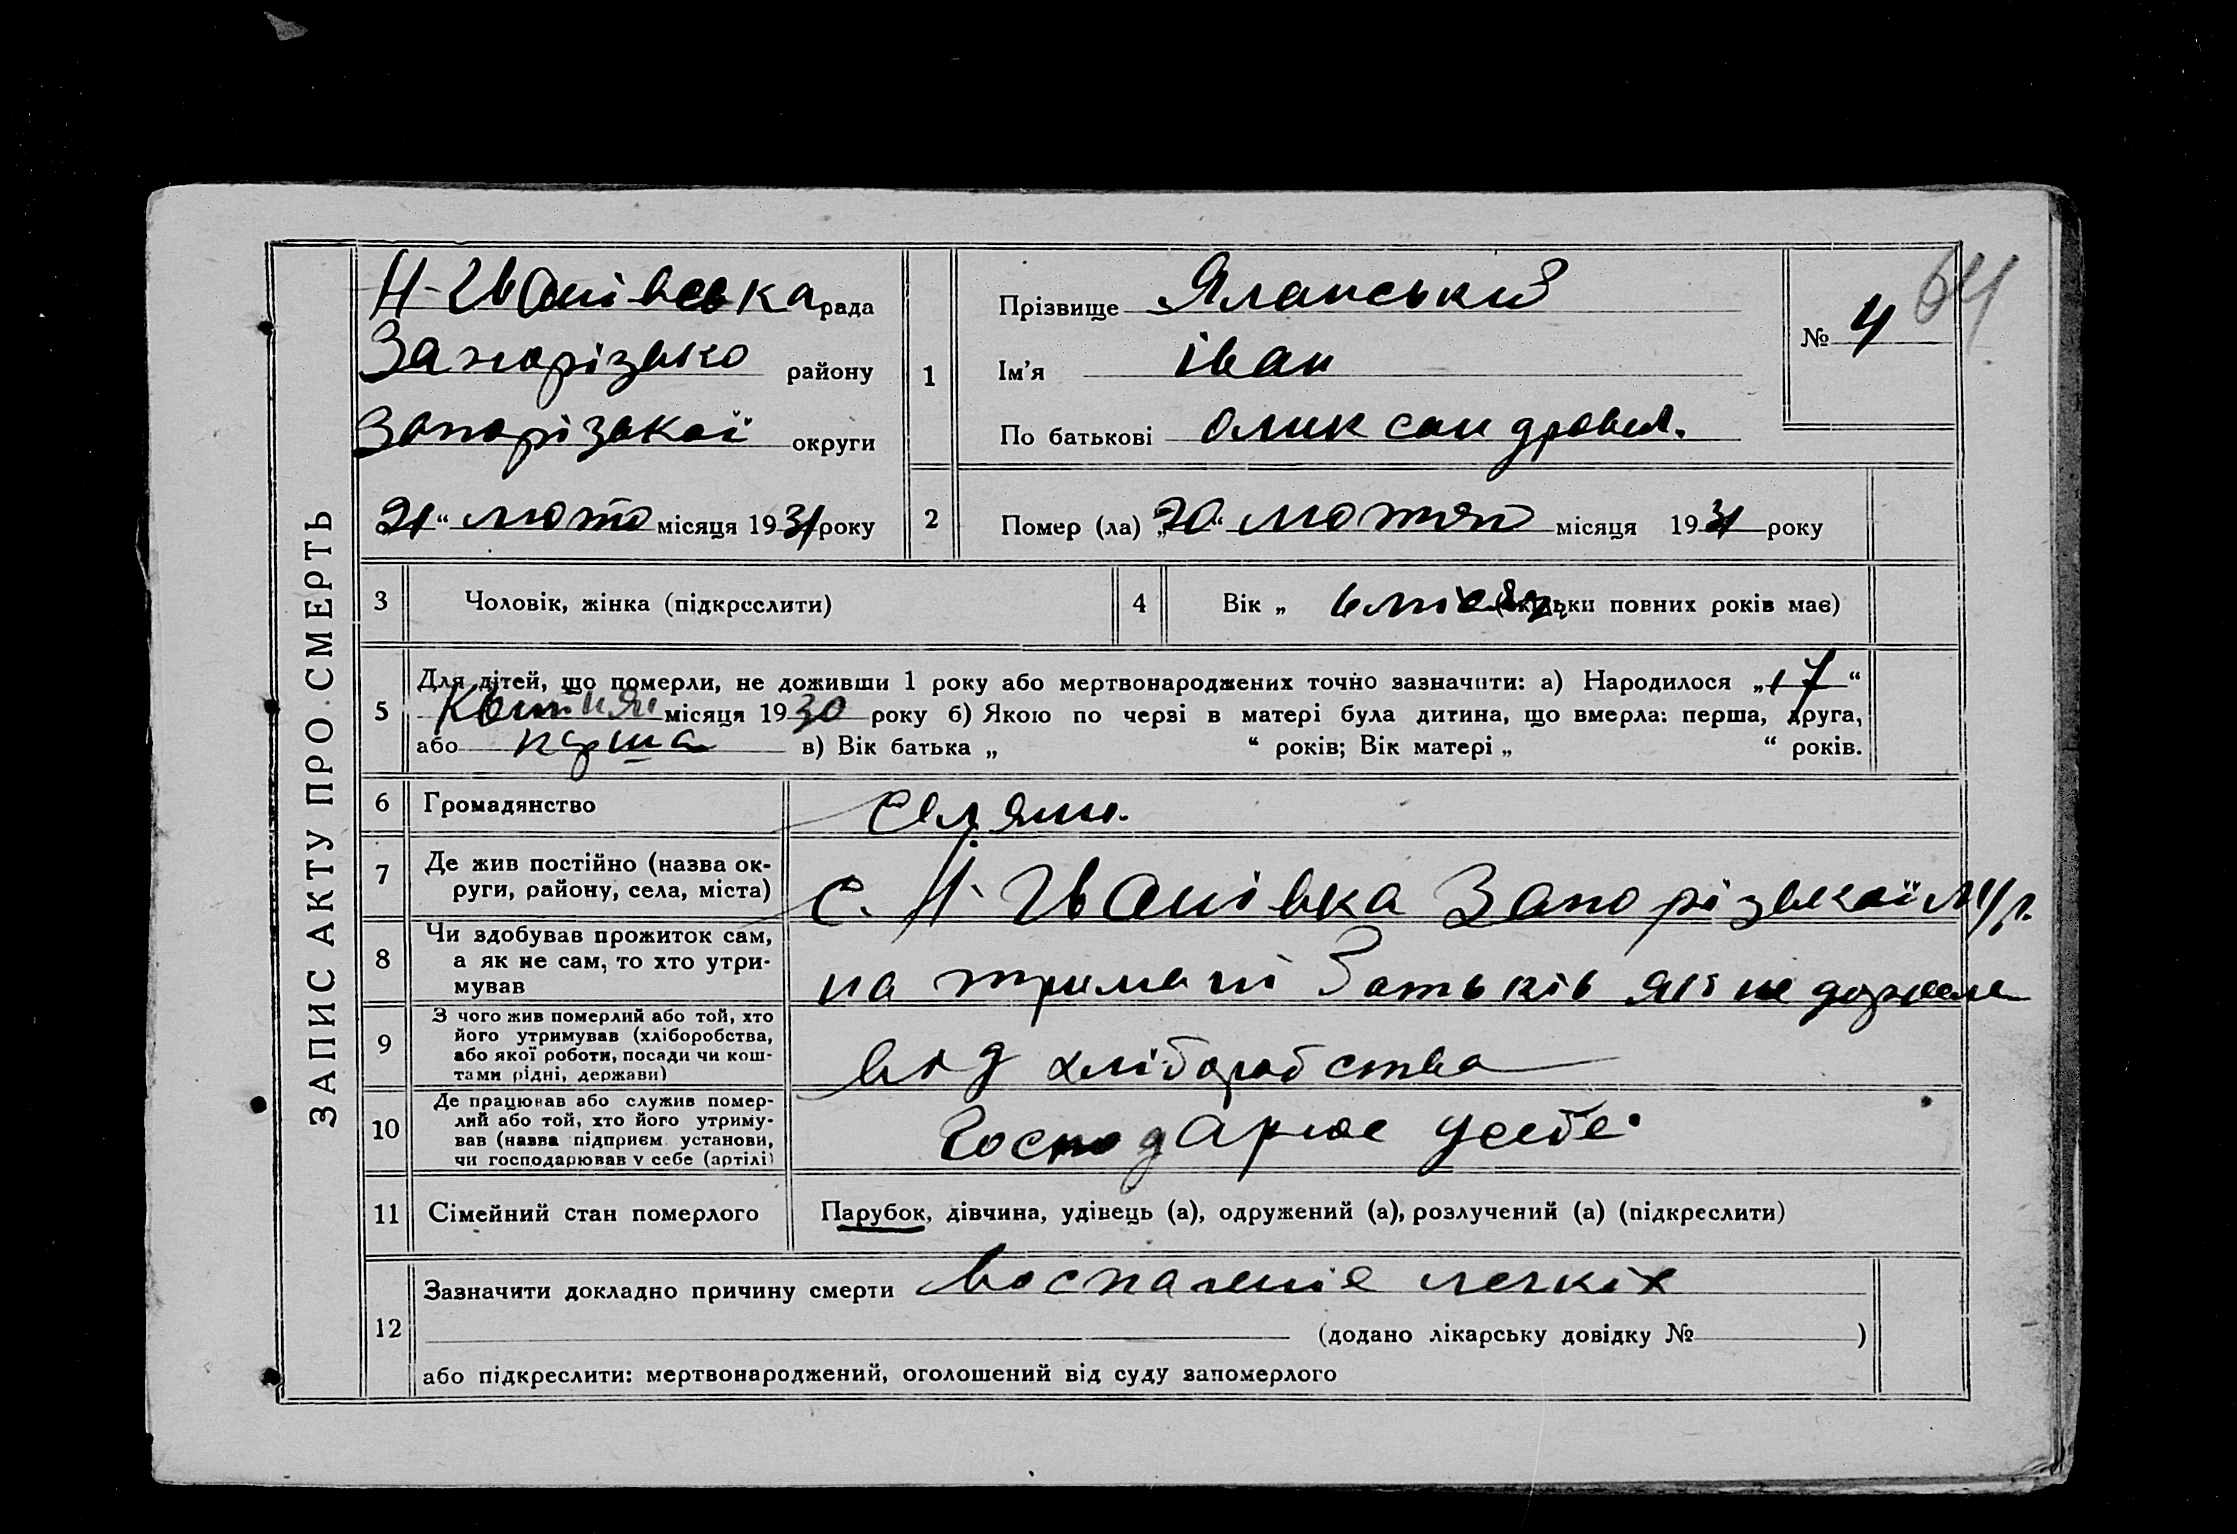 ЗАПИС АКТУ ПРО СМЕРТЬ
64
Н-Іванівська рада
Запорізько району
Запорізької округи
21 “ люто місяця 1931 року
1
Прізвище Яланський
Ім’я Іван
По батькові Олександров.
№ 4
2
Помер (ла) „20“ лютя місяця 1931 року
3 Чоловік, жінка (підкреслити)
4 Вік „ 6 місяц. (скільки повних років має)
5 Для дітей, що померли, не доживши 1 року або мертвонароджених точно зазначити: а) Народилося „17“
Квітня місяця 1930 року б) Якою по черзі в матері була дитина, що вмерла: перша, друга,
або перша в) Вік батька „ “ років; Вік матері „ “ років.
6 Громадянство селян.
7 Де жив постійно (назва ок-
руги, району, села, міста)
с. Н-Іванівка Запорізької м/р.
8 Чи здобував прожиток сам,
а як не сам, то хто утри-
мував
на тримані батьків як не доросле
9 З чого жив померлий або той, хто
його утримував (хліборобства,
або якої роботи, посади чи кош-
тами рідні, держави)
від хліборобства
10 Де працював або служив помер-
лий або той, хто його утриму-
вав (назва підприєм. установи,
чи господарював у себе (артілі)
господарює усебе.
11 Сімейний стан померлого
Парубок, дівчина, удівець (а), одружений (а), розлучений (а) (підкреслити)
12 Зазначити докладно причину смерти Воспаленіе легкіх
(додано лікарську довідку № )
або підкреслити: мертвонароджений, оголошений від суду запомерлого